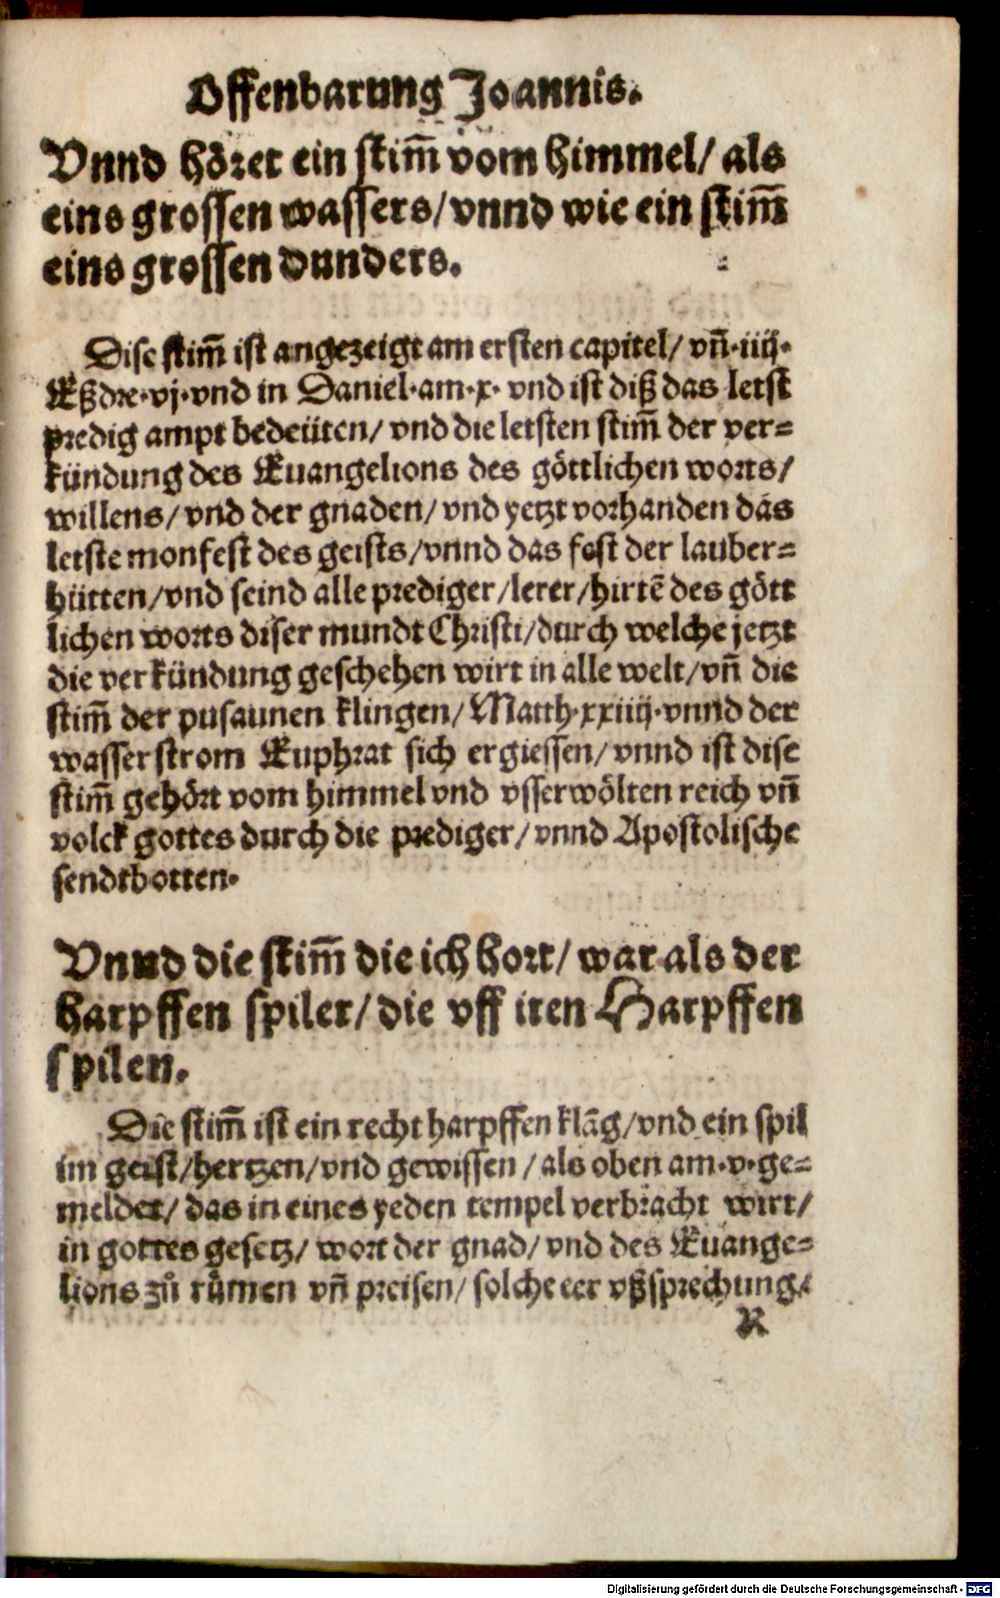 Offenbarung Joannis.
Vnnd höret ein stim̄ vom himmel/ als
eins grossen wassers/ vnnd wie ein stim̄
eins grossen dunders.
Dise stim̄ ist angezeigt am ersten capitel/ vn̄.iiij.
Eßdre.vj.vnd in Daniel.am.x. vnd ist diß das letst
predig ampt bedeüten/ vnd die letsten stim̄ der ver=
kündung des Euangelions des göttlichen worts/
willens/ vnd der gnaden/ vnd yetzt vorhanden das
letste monfest des geists/ vnnd das fest der lauber=
hütten/ vnd seind alle prediger/ lerer/ hirtē des gött
lichen worts diser mundt Christi/ durch welche jetzt
die verkündung geschehen wirt in alle welt/ vn̄ die
stim̄ der pusaunen klingen/ Matth.xxiiij.vnnd der
wasserstrom Euphrat sich ergiessen/ vnnd ist dise
stim̄ gehört vom himmel vnd vsserwölten reich vn̄
volck gottes durch die prediger/ vnnd Apostolische
sendtbotten.
Vnnd die stim̄ die ich hort/ war als der
harpffen spiler/ die vff iren Harpffen
spilen.
Die stim̄ ist ein recht harpffen klāg/ vnd ein spil
im geist/ hertzen/ vnd gewissen/ als oben am.v.ge=
meldet/ das in eines yeden tempel verbracht wirt/
in gottes gesetz/ wort der gnad/ vnd des Euange=
lions zů rümen vn̄ preisen/ solche eer vßsprechung/
R
Digitalisierung gefördert durch die Deutsche Forschungsgemeinschaft - DFG